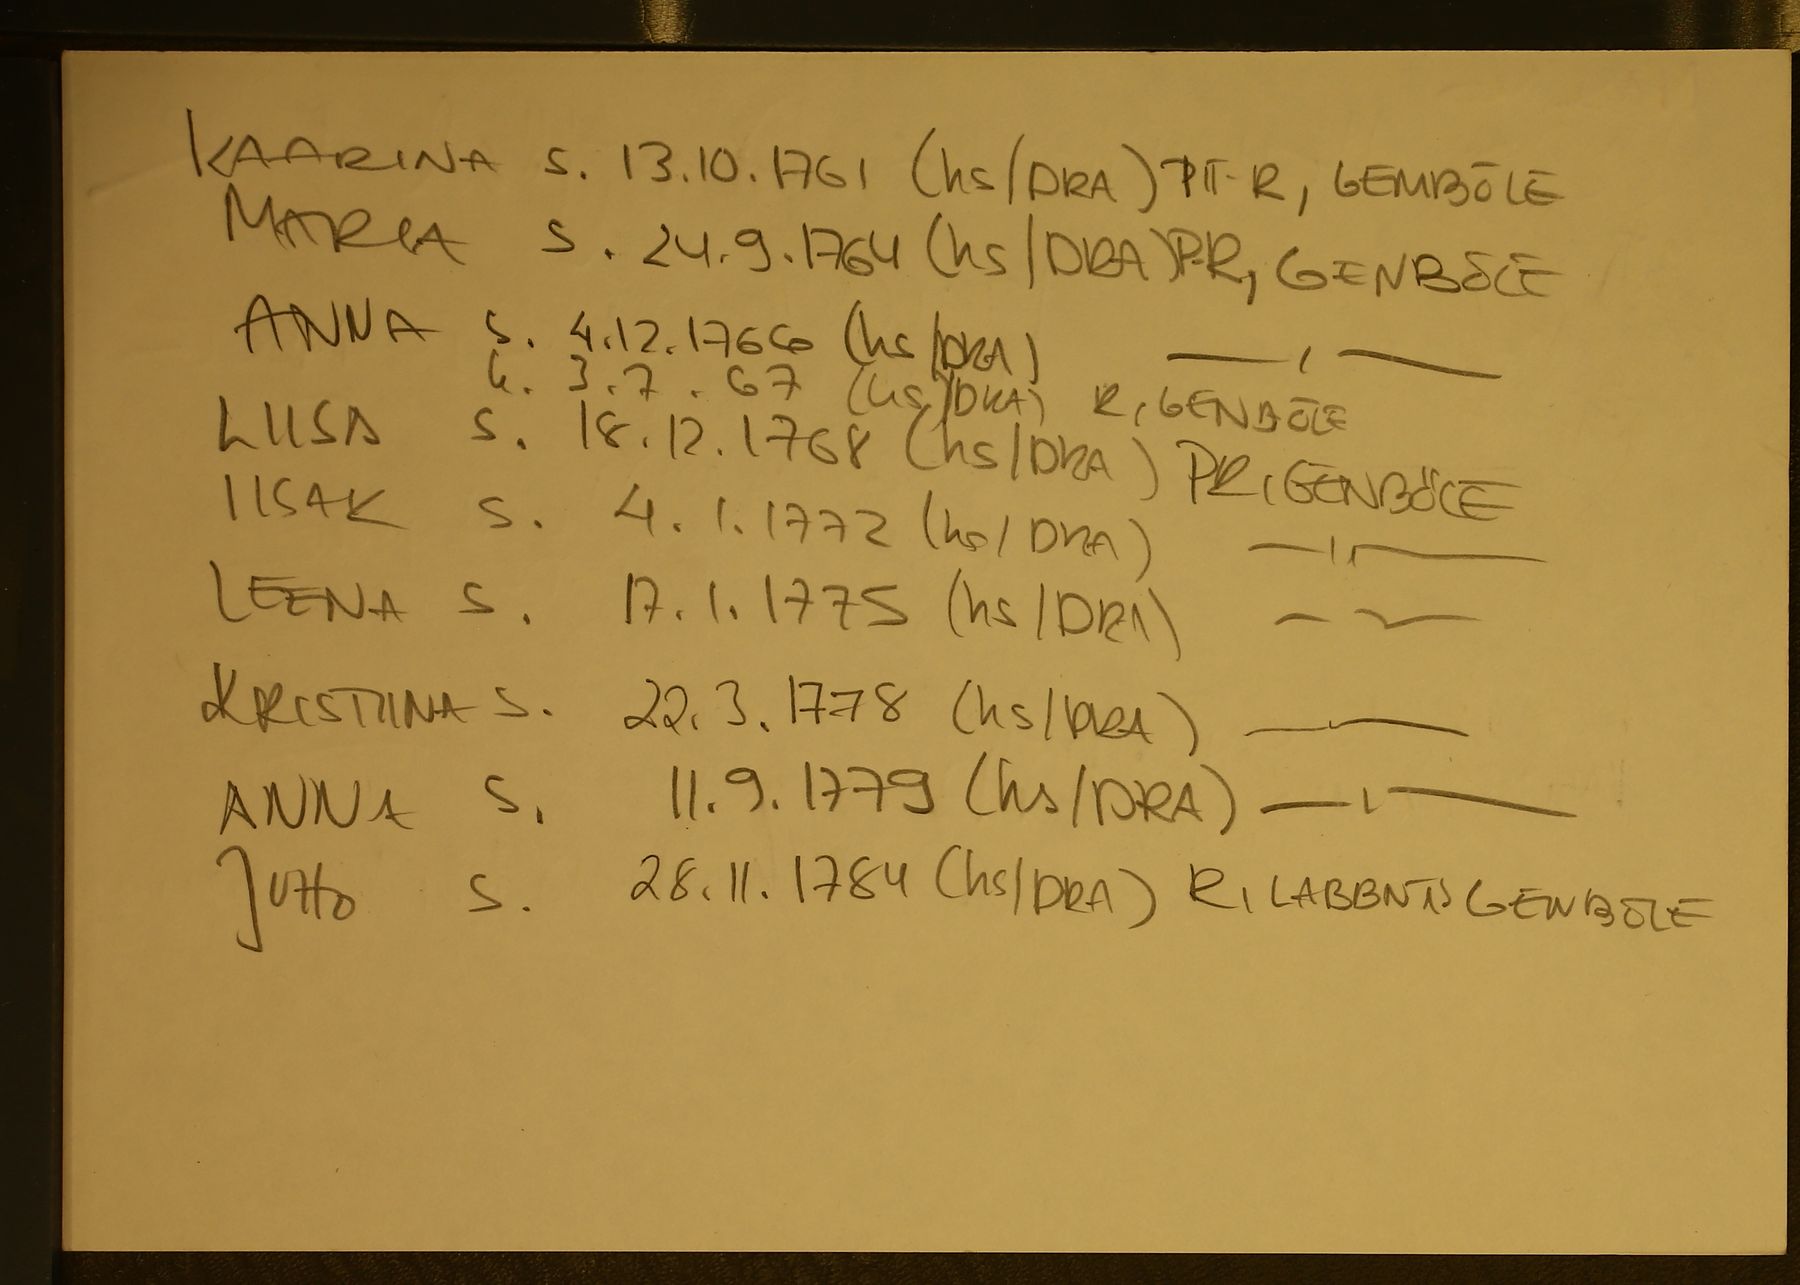 KAARINA S. 13.10.1761 (hs/DRA) PIT-R, GEMBÖLE
MARIA S. 24.9.1764 (hs/DRA) P-R, GENBÖLE
ANNA S. 4.12.1766 (hs/DRA) — , —
K. 3.7.67 (hs/DRA) R, GENBÖLE
LIISA S. 18.12.1768 (hs/DRA) PR, GENBÖLE
IISAK S. 4.1.1772 (hs/DRA) — , —
LEENA S. 17.1.1775 (hs/DRA) — , —
KRISTIINA S. 22.3.1778 (hs/DRA) — , —
ANNA S. 11.9.1779 (hs/DRA) — , —
JUHO S. 28.11.1784 (hs/DRA) R, GENBÖLE